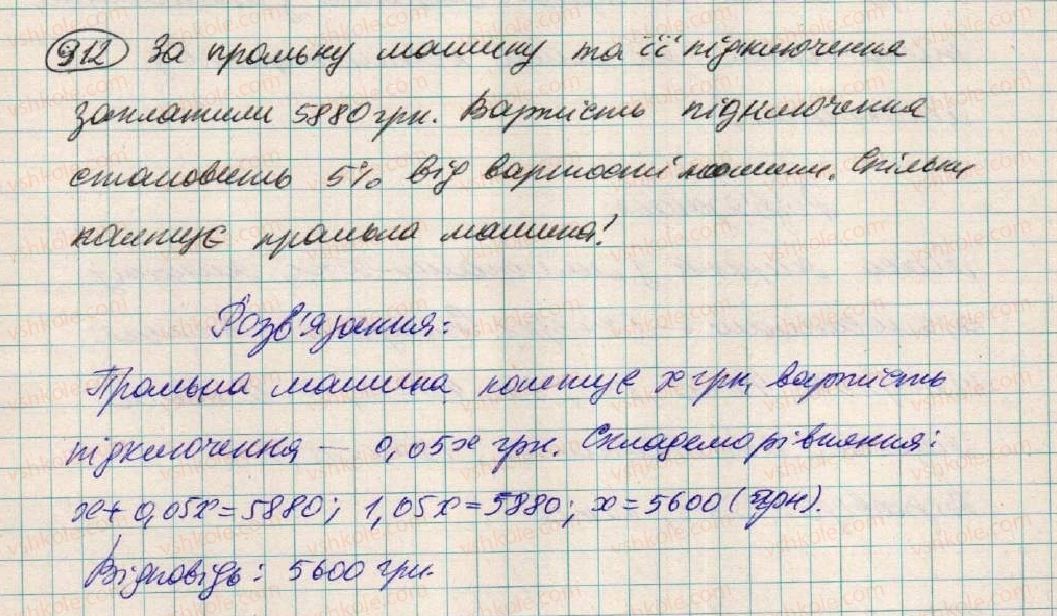 912 За пральну машину та її підключення
заплатили 5880 грн. Вартість підключення
становить 5% від вартості машини. Скільки
коштує пральна машина?
Розв'язання:
Пральна машина коштує x грн, вартість
підключення — 0,05x грн. Складемо рівняння:
x + 0,05x = 5880; 1,05x = 5880; x = 5600 (грн).
Відповідь: 5600 грн.
vshkole.com